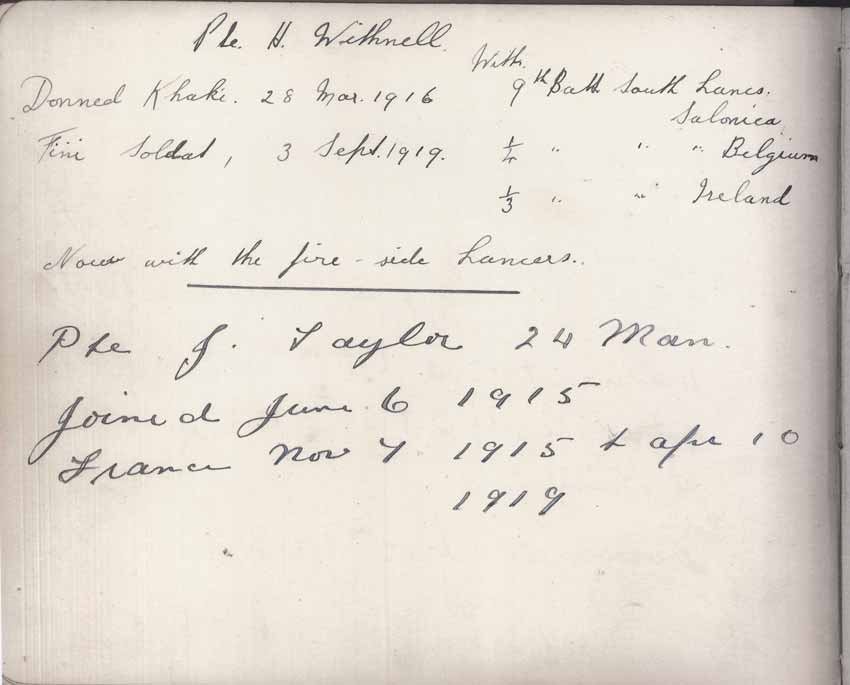 Pte. H. Withnell.
With.
Donned Khaki. 28 Mar. 1916 9th Batt South Lancs.
Salonica
Fini Soldat, 3 Sept. 1919. 1/4 " " " Belgium
1/3 " " Ireland
Now with the fire-side Lancers.
Pte J. Taylor 24 Man.
Joined June 6 1915
France Nov 7 1915 t apr 10
1919